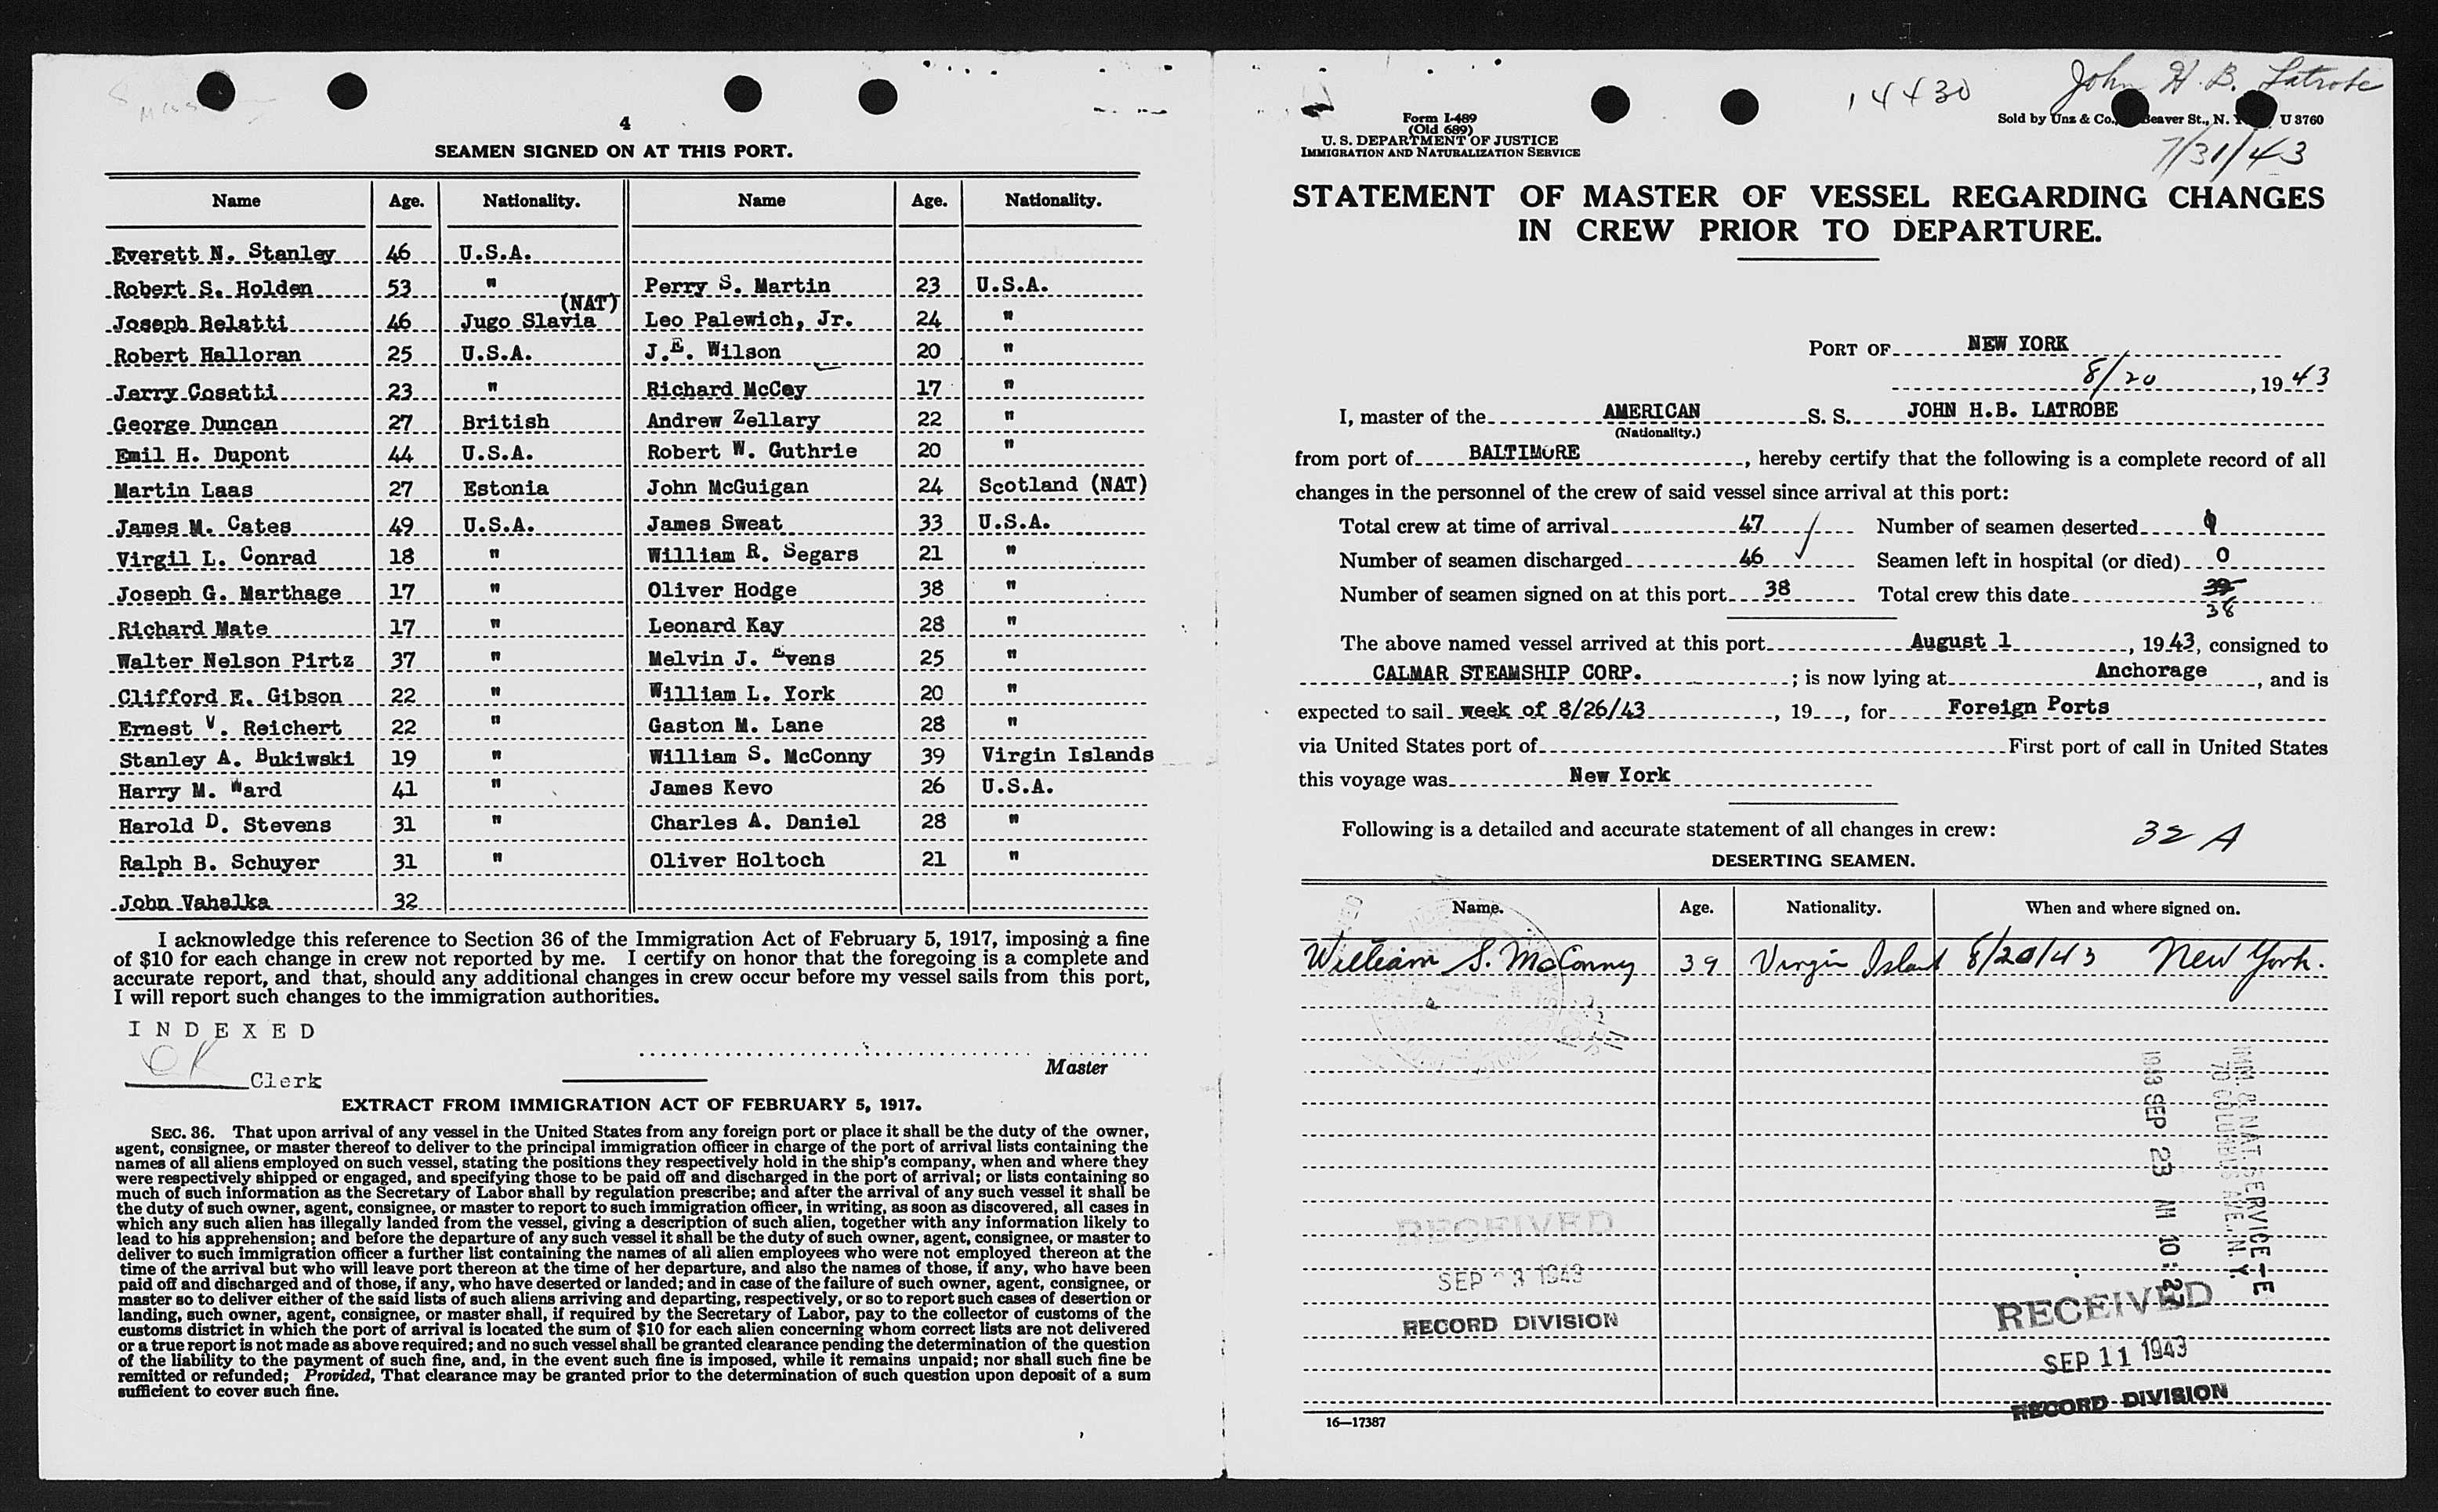 4
SEAMEN SIGNED ON AT THIS PORT.
Name Age. Nationality. Name Age. Nationality.
Everett N. Stanley 46 U.S.A.
Robert S. Holden 53 " Perry S. Martin 23 U.S.A.
(NAT)
Joseph Belatti 46 Jugo Slavia Leo Palewich, Jr. 24 "
Robert Halloran 25 U.S.A. J.E. Wilson 20 "
Jerry Cosetti 23 " Richard McCoy 17 "
George Duncan 27 British Andrew Zellary 22 "
Emil H. Dupont 44 U.S.A. Robert W. Guthrie 20 "
Martin Laas 27 Estonia John McGuigan 24 Scotland (NAT)
James M. Cates 49 U.S.A. James Sweat 33 U.S.A.
Virgil L. Conrad 18 " William R. Segars 21 "
Joseph G. Marthage 17 " Oliver Hodge 38 "
Richard Mate 17 " Leonard Kay 28 "
Walter Nelson Pirtz 37 " Melvin J. Evens 25 "
Clifford E. Gibson 22 " William L. York 20 "
Ernest V. Reichert 22 " Gaston M. Lane 28 "
Stanley A. Bukiwski 19 " William S. McConny 39 Virgin Islands
Harry M. Ward 41 " James Kevo 26 U.S.A.
Harold D. Stevens 31 " Charles A. Daniel 28 "
Ralph B. Schuyer 31 " Oliver Holtoch 21 "
John Vahalka 32
I acknowledge this reference to Section 36 of the Immigration Act of February 5, 1917, imposing a fine
of $10 for each change in crew not reported by me. I certify on honor that the foregoing is a complete and
accurate report, and that, should any additional changes in crew occur before my vessel sails from this port,
I will report such changes to the immigration authorities.
INDEXED
OK Clerk
Master
EXTRACT FROM IMMIGRATION ACT OF FEBRUARY 5, 1917.
SEC. 36. That upon arrival of any vessel in the United States from any foreign port or place it shall be the duty of the owner,
agent, consignee, or master thereof to deliver to the principal immigration officer in charge of the port of arrival lists containing the
names of all aliens employed on such vessel, stating the positions they respectively hold in the ship's company, when and where they
were respectively shipped or engaged, and specifying those to be paid off and discharged in the port of arrival; or lists containing so
much of such information as the Secretary of Labor shall by regulation prescribe; and after the arrival of any such vessel it shall be
the duty of such owner, agent, consignee, or master to report to such immigration officer, in writing, as soon as discovered, all cases in
which any such alien has illegally landed from the vessel, giving a description of such alien, together with any information likely to
lead to his apprehension; and before the departure of any such vessel it shall be the duty of such owner, agent, consignee, or master to
deliver to such immigration officer a further list containing the names of all alien employees who were not employed thereon at the
time of the arrival but who will leave port thereon at the time of her departure, and also the names of those, if any, who have been
paid off and discharged and of those, if any, who have deserted or landed; and in case of the failure of such owner, agent, consignee, or
master so to deliver either of the said lists of such aliens arriving and departing, respectively, or so to report such cases of desertion or
landing, such owner, agent, consignee, or master shall, if required by the Secretary of Labor, pay to the collector of customs of the
customs district in which the port of arrival is located the sum of $10 for each alien concerning whom correct lists are not delivered
or a true report is not made as above required; and no such vessel shall be granted clearance pending the determination of the question
of the liability to the payment of such fine, and, in the event such fine is imposed, while it remains unpaid; nor shall such fine be
remitted or refunded; Provided, That clearance may be granted prior to the determination of such question upon deposit of a sum
sufficient to cover such fine.
14430 John H. B. Latrobe
Form I-489
(Old 689)
U. S. DEPARTMENT OF JUSTICE
IMMIGRATION AND NATURALIZATION SERVICE
Sold by Unz & Co., Beaver St., N. Y. U 3760
7/31/43
STATEMENT OF MASTER OF VESSEL REGARDING CHANGES
IN CREW PRIOR TO DEPARTURE.
PORT OF NEW YORK
8/20, 1943
I, master of the AMERICAN S. S. JOHN H.B. LATROBE
(Nationality.)
from port of BALTIMORE, hereby certify that the following is a complete record of all
changes in the personnel of the crew of said vessel since arrival at this port:
Total crew at time of arrival 47 Number of seamen deserted
Number of seamen discharged 46 Seamen left in hospital (or died) 0
Number of seamen signed on at this port 38 Total crew this date 39
38
The above named vessel arrived at this port August 1, 1943, consigned to
CALMAR STEAMSHIP CORP.; is now lying at Anchorage, and is
expected to sail week of 8/26/43, 19, for Foreign Ports
via United States port of First port of call in United States
this voyage was New York
Following is a detailed and accurate statement of all changes in crew:
32 A
DESERTING SEAMEN.
Name. Age. Nationality. When and where signed on.
William S. McConny 39 Virgin Island 8/20/43 New York.
IMM. & NAT. SERVICE-E
70 COLUMBUS AVE., N.Y.
1943 SEP 23 AM 10:23
RECEIVED
SEP 23 1943
RECORD DIVISION
RECEIVED
SEP 11 1943
RECORD DIVISION
16—17387